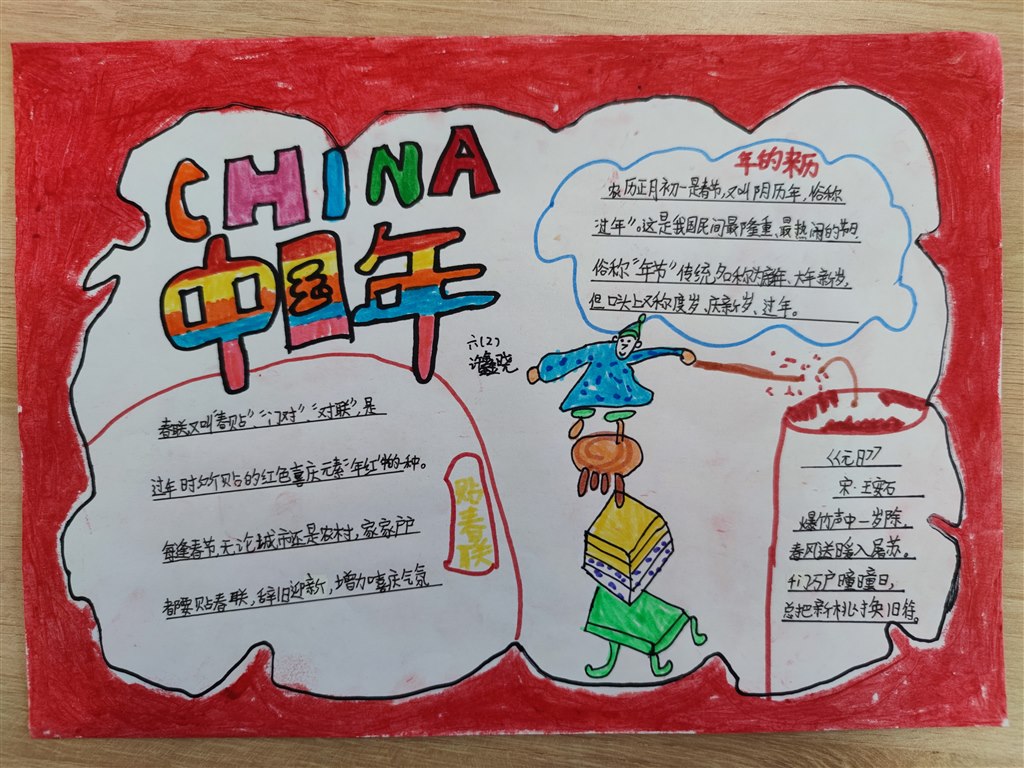 CHINA
中国年
年的来历
农历正月初一是春节,又叫阴历年,俗称
"过年"。这是我国民间最隆重、最热闹的节日,
俗称"年节"传统,名称为 年、大年新岁,
但口头上又称度岁、庆新岁、过年。
六(2)
许鑫晓
春联,又叫"春贴"、"门对"、"对联",是
过年时所贴的红色喜庆元素"年红"的一种。
每逢春节,无论城市还是农村,家家户户
都要贴春联,辞旧迎新,增加喜庆气氛
贴春联
《元日》
宋·王安石
爆竹声中一岁除,
春风送暖入屠苏。
千门万户曈曈日,
总把新桃换旧符。